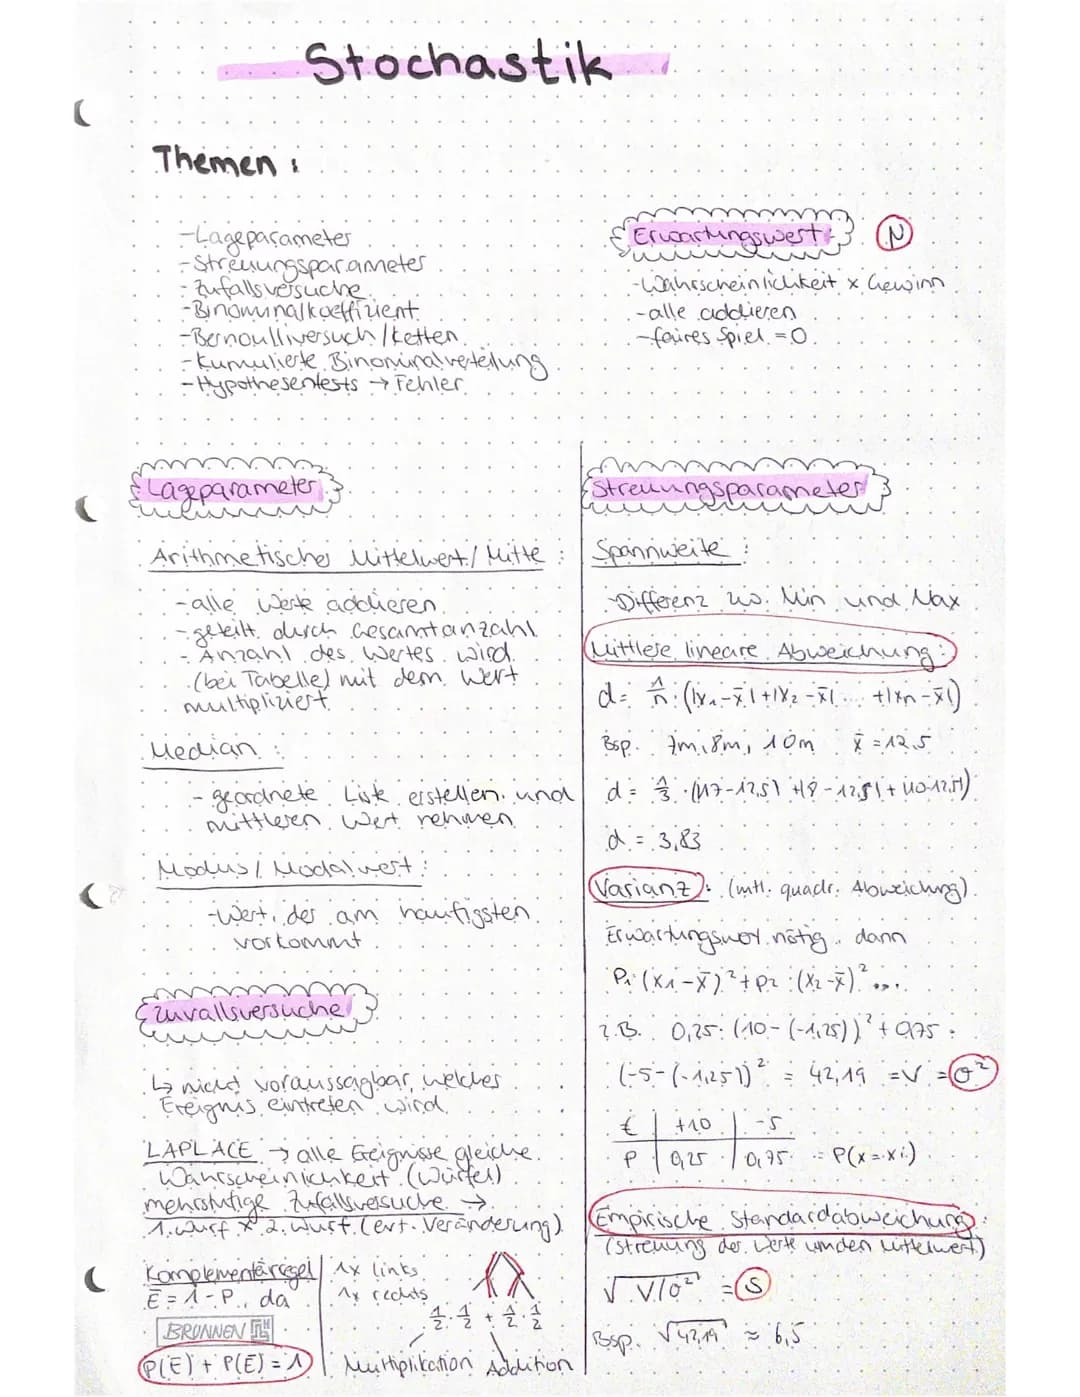 Stochastik
Themen :
-Lageparameter
-Streuungsparameter
- Zufallsversuche
-Binominalkoeffizient
-Bernoulliversuch/ketten
-Kumulierte Binominalverteilung
-Hypothesentests → Fehler
Erwartungswert: N
-Wahrscheinlichkeit x Gewinn
-alle addieren
-faires Spiel = 0
Lageparameter
Arithmetisches Mittelwert / Mitte :
-alle Werte addieren
-geteilt durch Gesamtanzahl
- Anzahl des Wertes wird
(bei Tabelle) mit dem Wert
multipliziert
Median :
- geordnete Liste erstellen und
mittleren Wert nehmen
Modus / Modalwert :
-Wert, der am häufigsten
vorkommt
Zuvallsversuche
↳ nicht voraussagbar, welches
Ereignis eintreten wird
LAPLACE → alle Ereignisse gleiche
Wahrscheinlichkeit (Würfel)
mehrstufige Zufallsversuche →
1. Wurf x 2. Wurf (evt. Veränderung)
Komplementärregel
Ē = 1 - P , da
BRUNNEN
P(E) + P(Ē) = 1
1x links
1x rechts
1/2 · 1/2 + 1/2 · 1/2
Multiplikation Addition
Streuungsparameter
Spannweite :
-Differenz zw. Min und Max
Mittlere lineare Abweichung :
d = 1/n · (|x₁-x̄|+|x₂-x̄|... +|xn-x̄|)
Bsp. 7m, 8m, 10m x̄ = 12,5
d = 1/3 · (|17-12,5| +|8-12,5|+|10-12,5|)
d = 3,83
Varianz : (mtl. quadr. Abweichung)
Erwartungswert nötig, dann
P₁·(x₁-x̄)²+p₂·(x₂-x̄)²...
z.B. 0,25·(10-(-1,25))²+0,75·
(-5-(-1,25))² = 42,19 =V =σ²
€ | +10 | -5
P | 0,25 | 0,75 = P(x=xi)
Empirische Standardabweichung :
(Streuung der Werte um den Mittelwert)
√V/σ² = S
Bsp. √42,19 ≈ 6,5